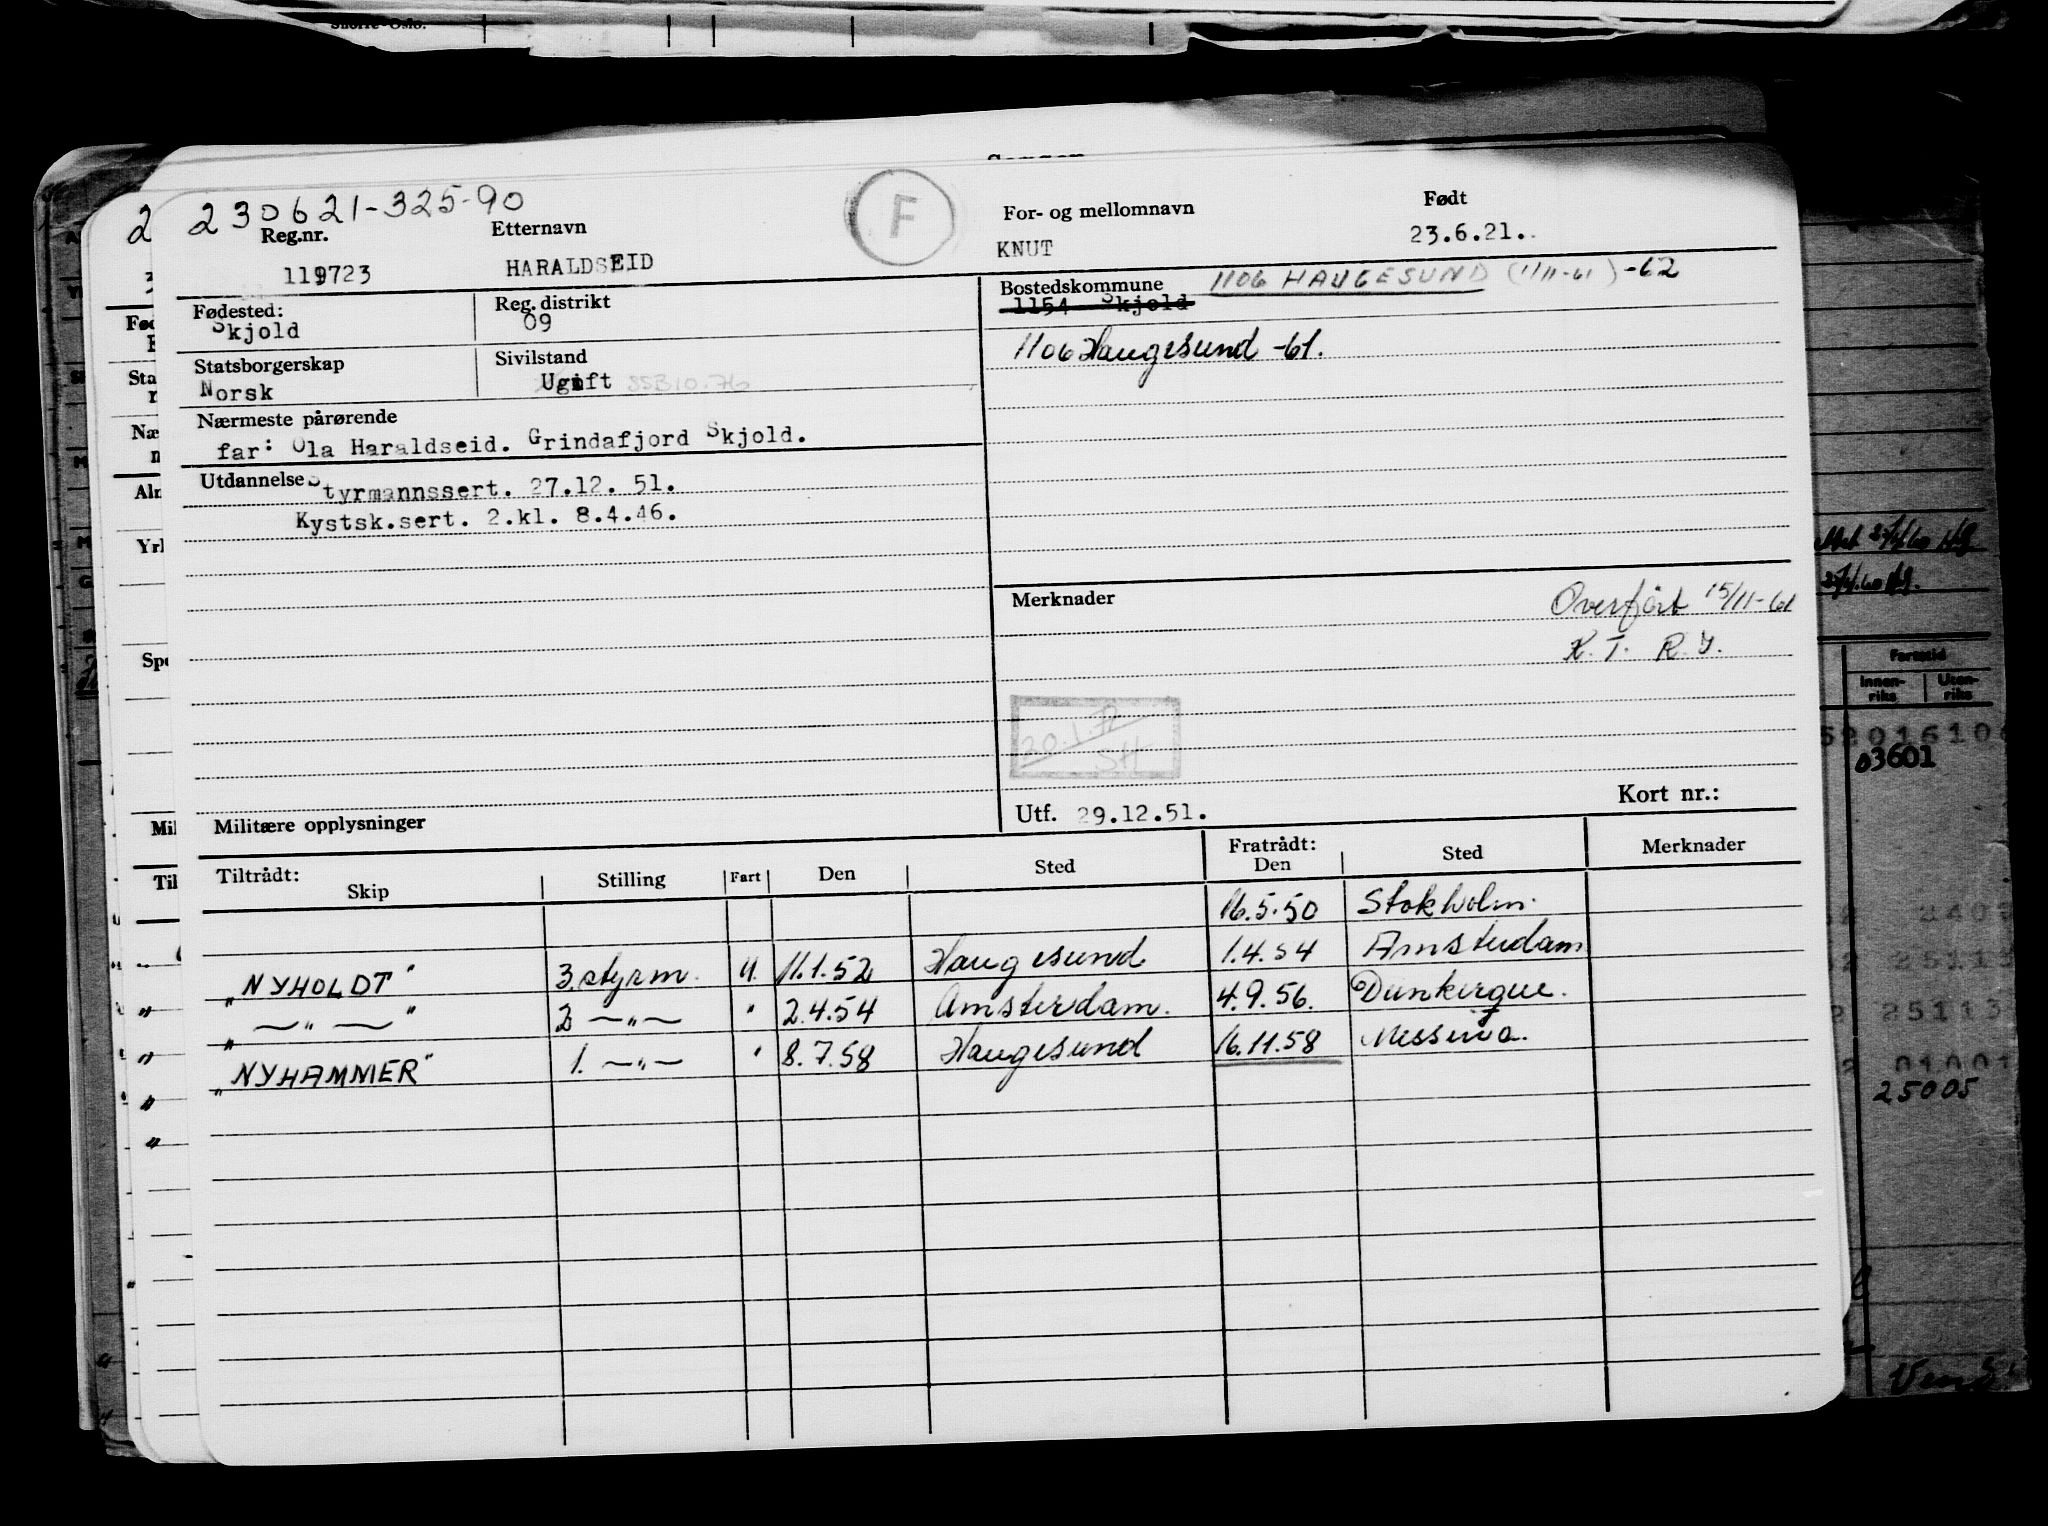 230621-325-90
F
Reg.nr. Etternavn For- og mellomnavn Født
119723 HARALDSEID KNUT 23.6.21.
Fødested: Reg. distrikt Bostedskommune 1106 HAUGESUND (1/11-61)-62
Skjold 09 1154 Skjold
Statsborgerskap Sivilstand 1106 Haugesund -61.
Norsk Ugift
Nærmeste pårørende
far: Ola Haraldseid. Grindafjord Skjold.
Utdannelse Styrmannssert. 27.12. 51.
Kystsk.sert. 2.kl. 8.4.46.
Merknader Overført 15/11-61
K. T. R. J.
20.1.72
SH
Utf. 29.12.51. Kort nr.:
Militære opplysninger
Tiltrådt: Fratrådt:
Skip Stilling Fart Den Sted Den Sted Merknader
16.5.50 Stokholm.
"NYHOLDT" 3. styrm. U. 11.1.52 Haugesund 1.4.54 Amsterdam
" —"— " 2 —"— " 2.4.54 Amsterdam. 4.9.56. Dunkirque.
"NYHAMMER" 1. —"— " 8.7.58 Haugesund 16.11.58 Messina.
Fartstid
Innen-riks Uten-riks
03601
25005